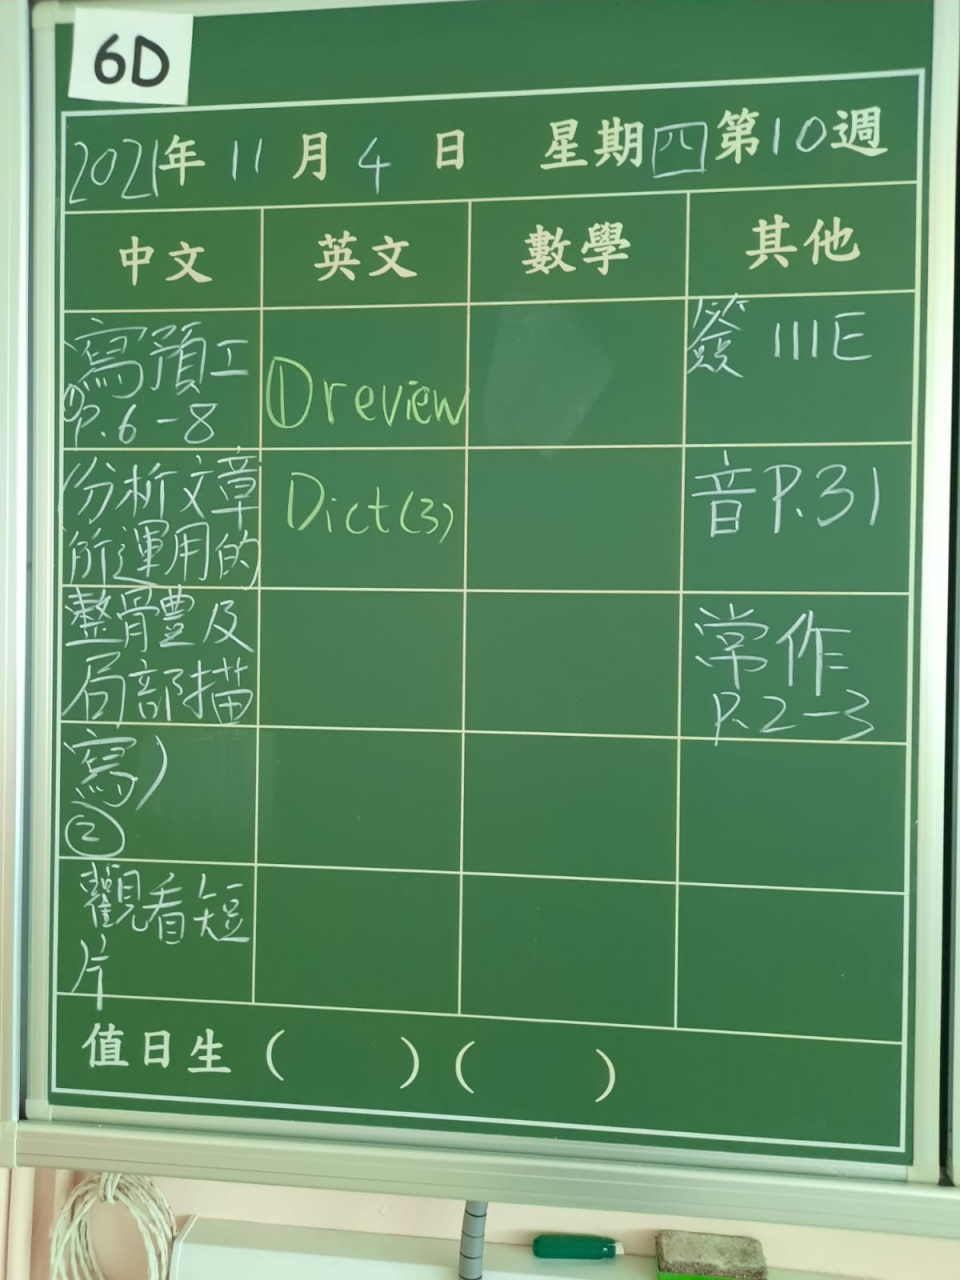 6D
2021年11月4日 星期四第10週
中文 英文 數學 其他
寫預工
①P.6-8
(分析文章
所運用的
整體及
局部描
寫)
②
觀看短
片
① review
Dict(3)
簽 111E
音P.31
常作
P.2-3
值日生 ( ) ( )